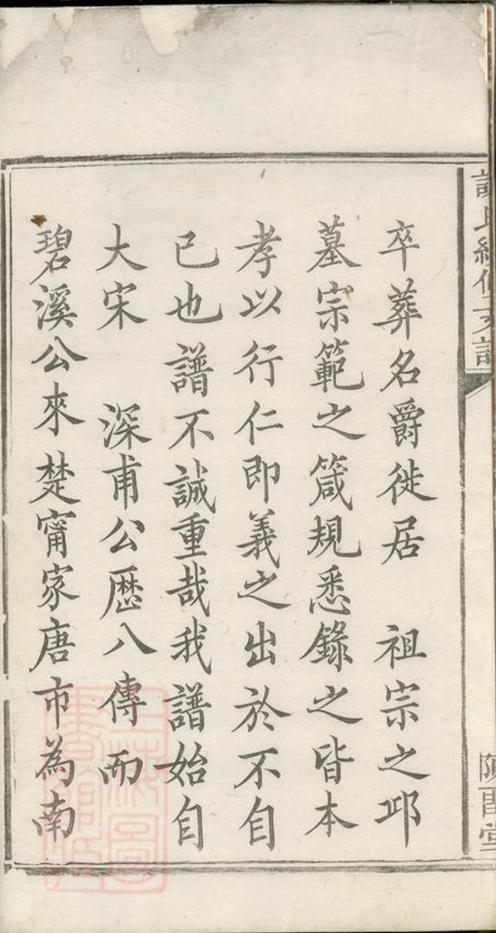 謝氏續修支譜
卒葬名爵徙居　祖宗之邱
墓宗範之箴規悉錄之皆本
孝以行仁即義之出於不自
已也譜不誠重哉我譜始自
大宋　深甫公歷八傳而
碧溪公來楚甯家唐市為南